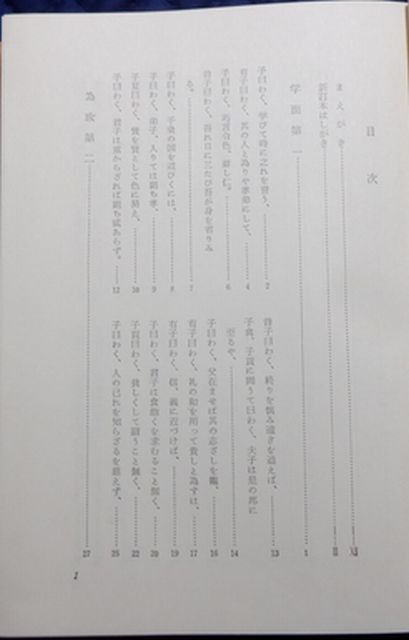 目次
まえがき XI
新訂本はしがき II
学而第一 1
子曰わく、学びて時に之れを習う、 2
有子曰わく、其の人と為りや孝弟にして、 4
子曰わく、巧言令色、鮮し仁。 6
曾子曰わく、吾れ日に三たび吾が身を省りみ
る。 7
子曰わく、千乗の国を道びくには、 8
子曰わく、弟子、入りては則ち孝、 9
子夏曰わく、賢を賢として色に易え、 10
子曰わく、君子は重からざれば則ち威あらず。 12
曾子曰わく、終りを慎み遠きを追えば、 13
子禽、子貢に問うて曰わく、夫子は是の邦に
至るや、 14
子曰わく、父在ませば其の志ざしを観、 16
有子曰わく、礼の和を用って貴しと為すは、 17
有子曰わく、信、義に近づけば、 19
子曰わく、君子は食飽くを求むること無く、 20
子貢曰わく、貧しくして諂うこと無く、 22
子曰わく、人の己れを知らざるを患えず、 25
為政第二 27
1